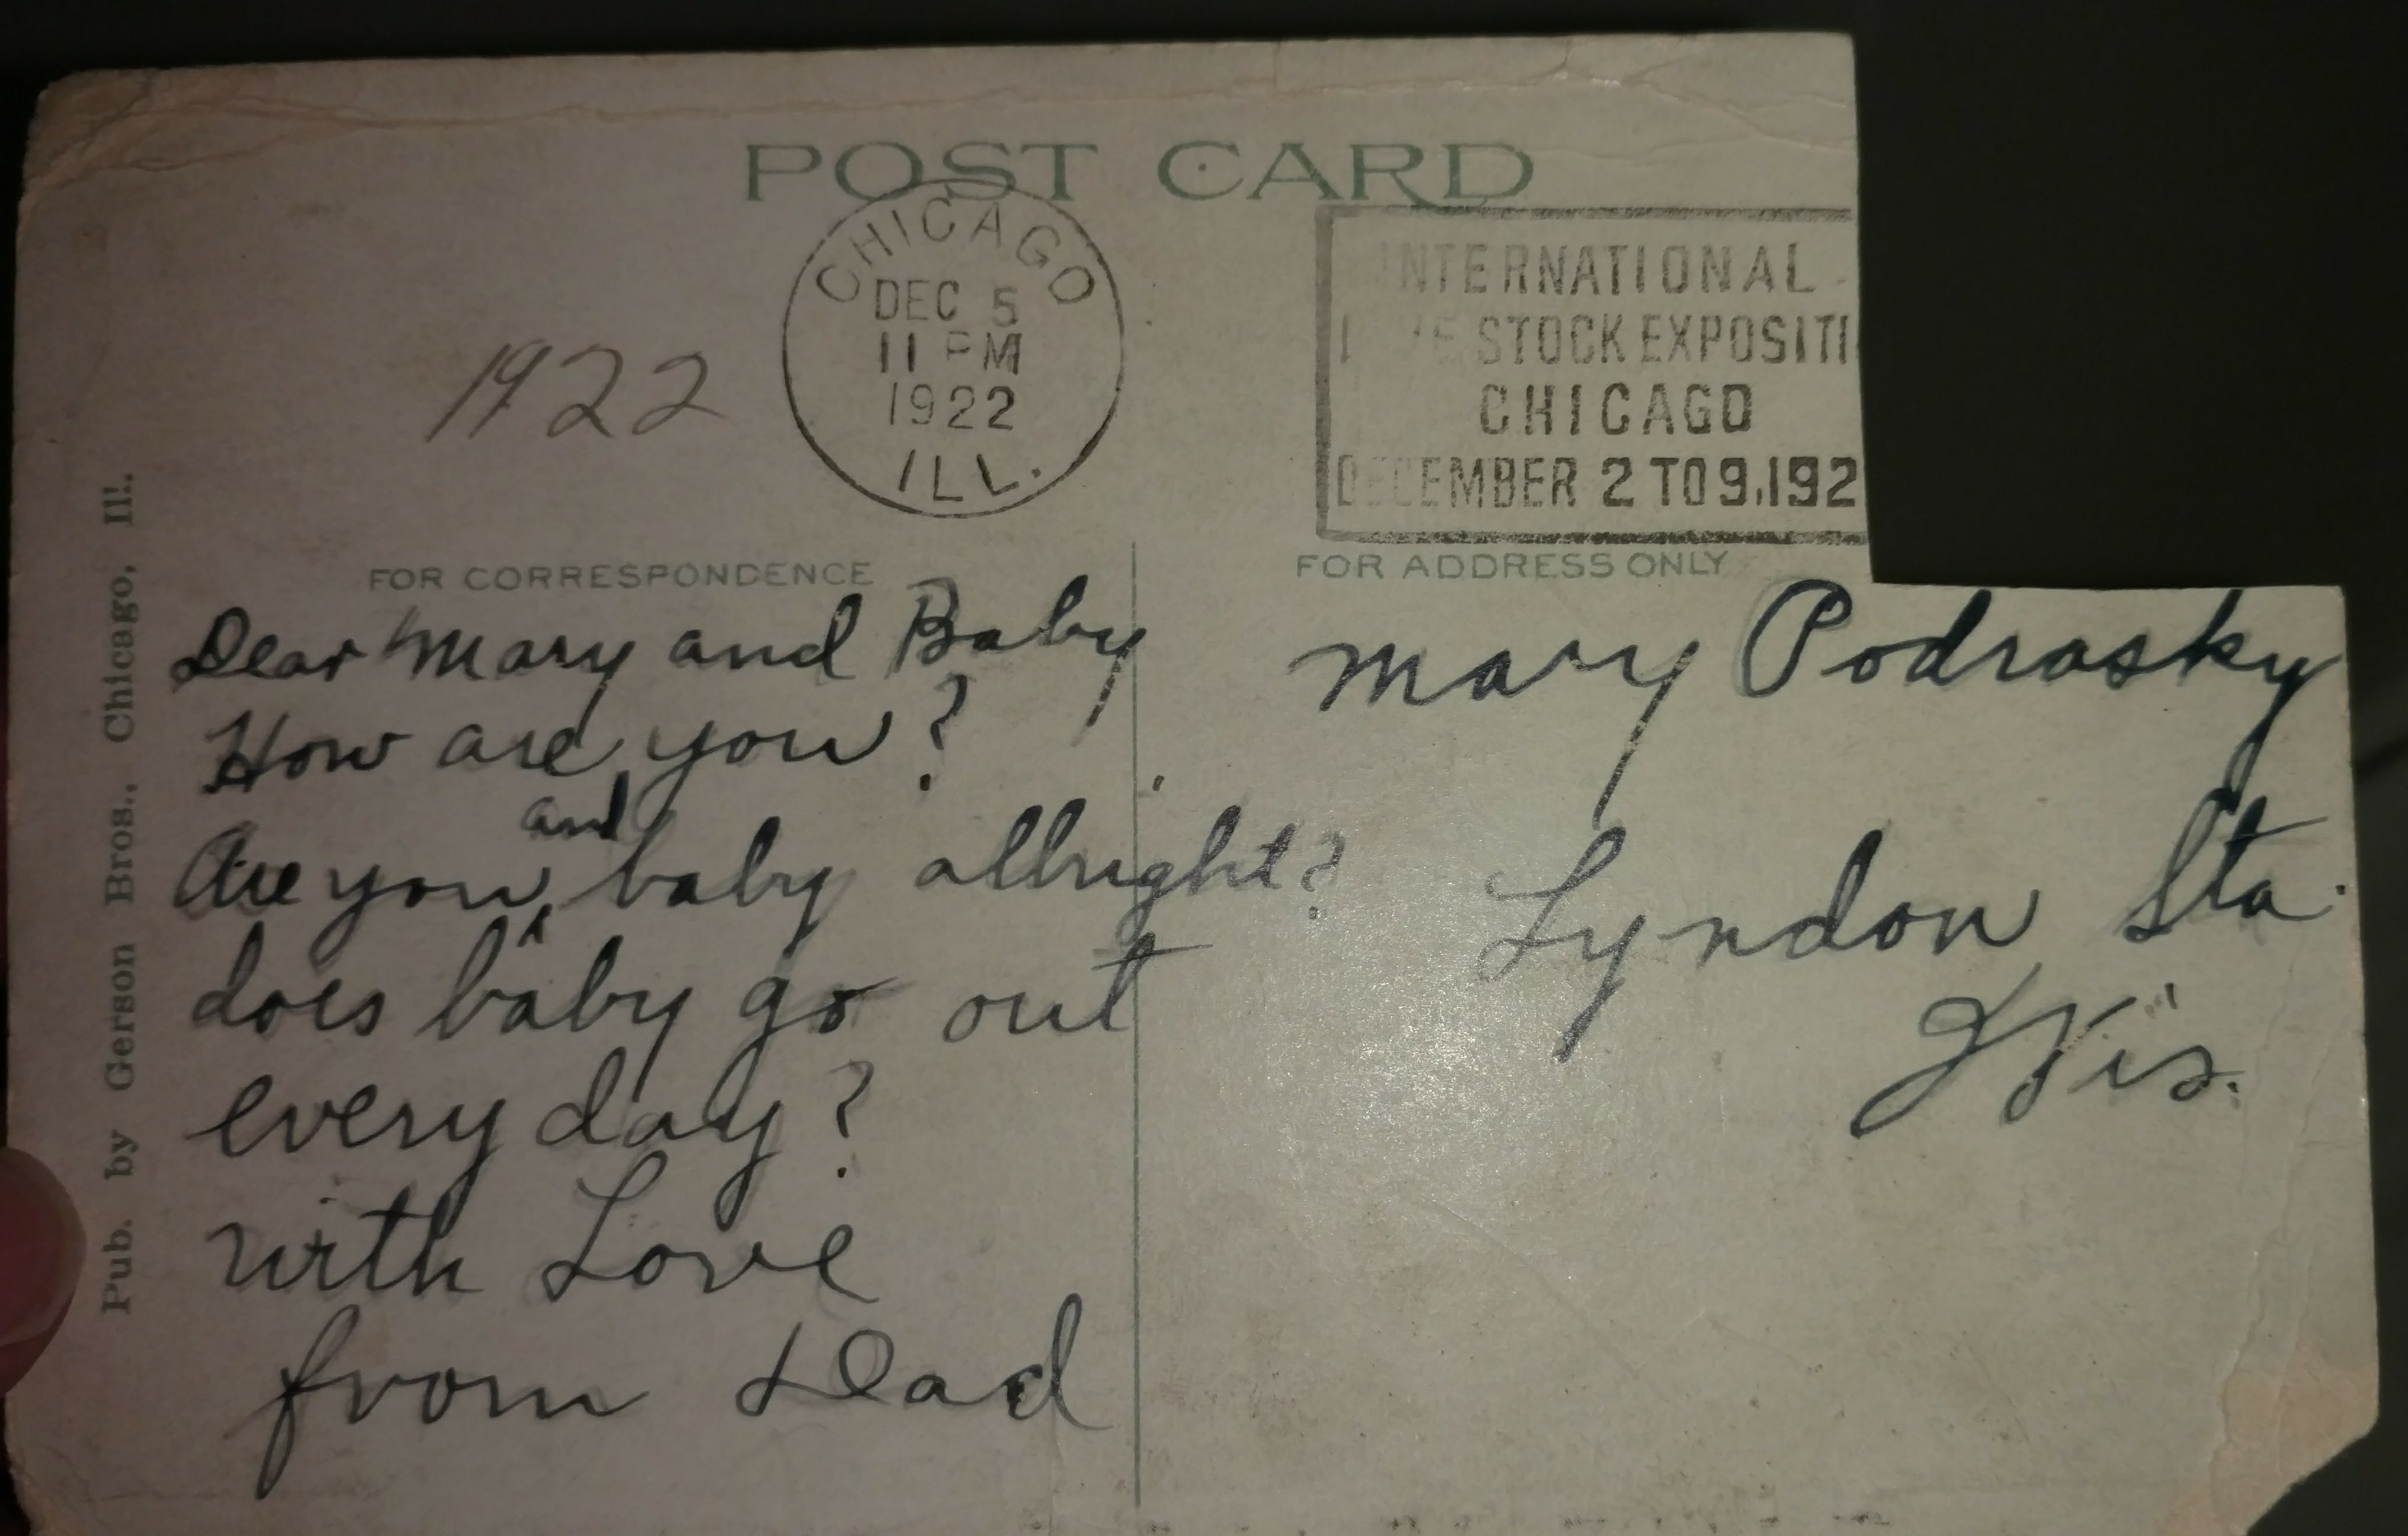 POST CARD
CHICAGO
DEC 5
11 PM
1922
ILL.
INTERNATIONAL
STOCK EXPOSITI
CHICAGO
DECEMBER 2 TO 9, 192
1922
FOR CORRESPONDENCE
FOR ADDRESS ONLY
Dear Mary and Baby
How are you?
Are you and baby allright?
does baby go out
every day?
with Love
from Dad
Mary Podrasky
Lyndon Sta.
Wis.
Pub. by Gerson Bros., Chicago, Ill.